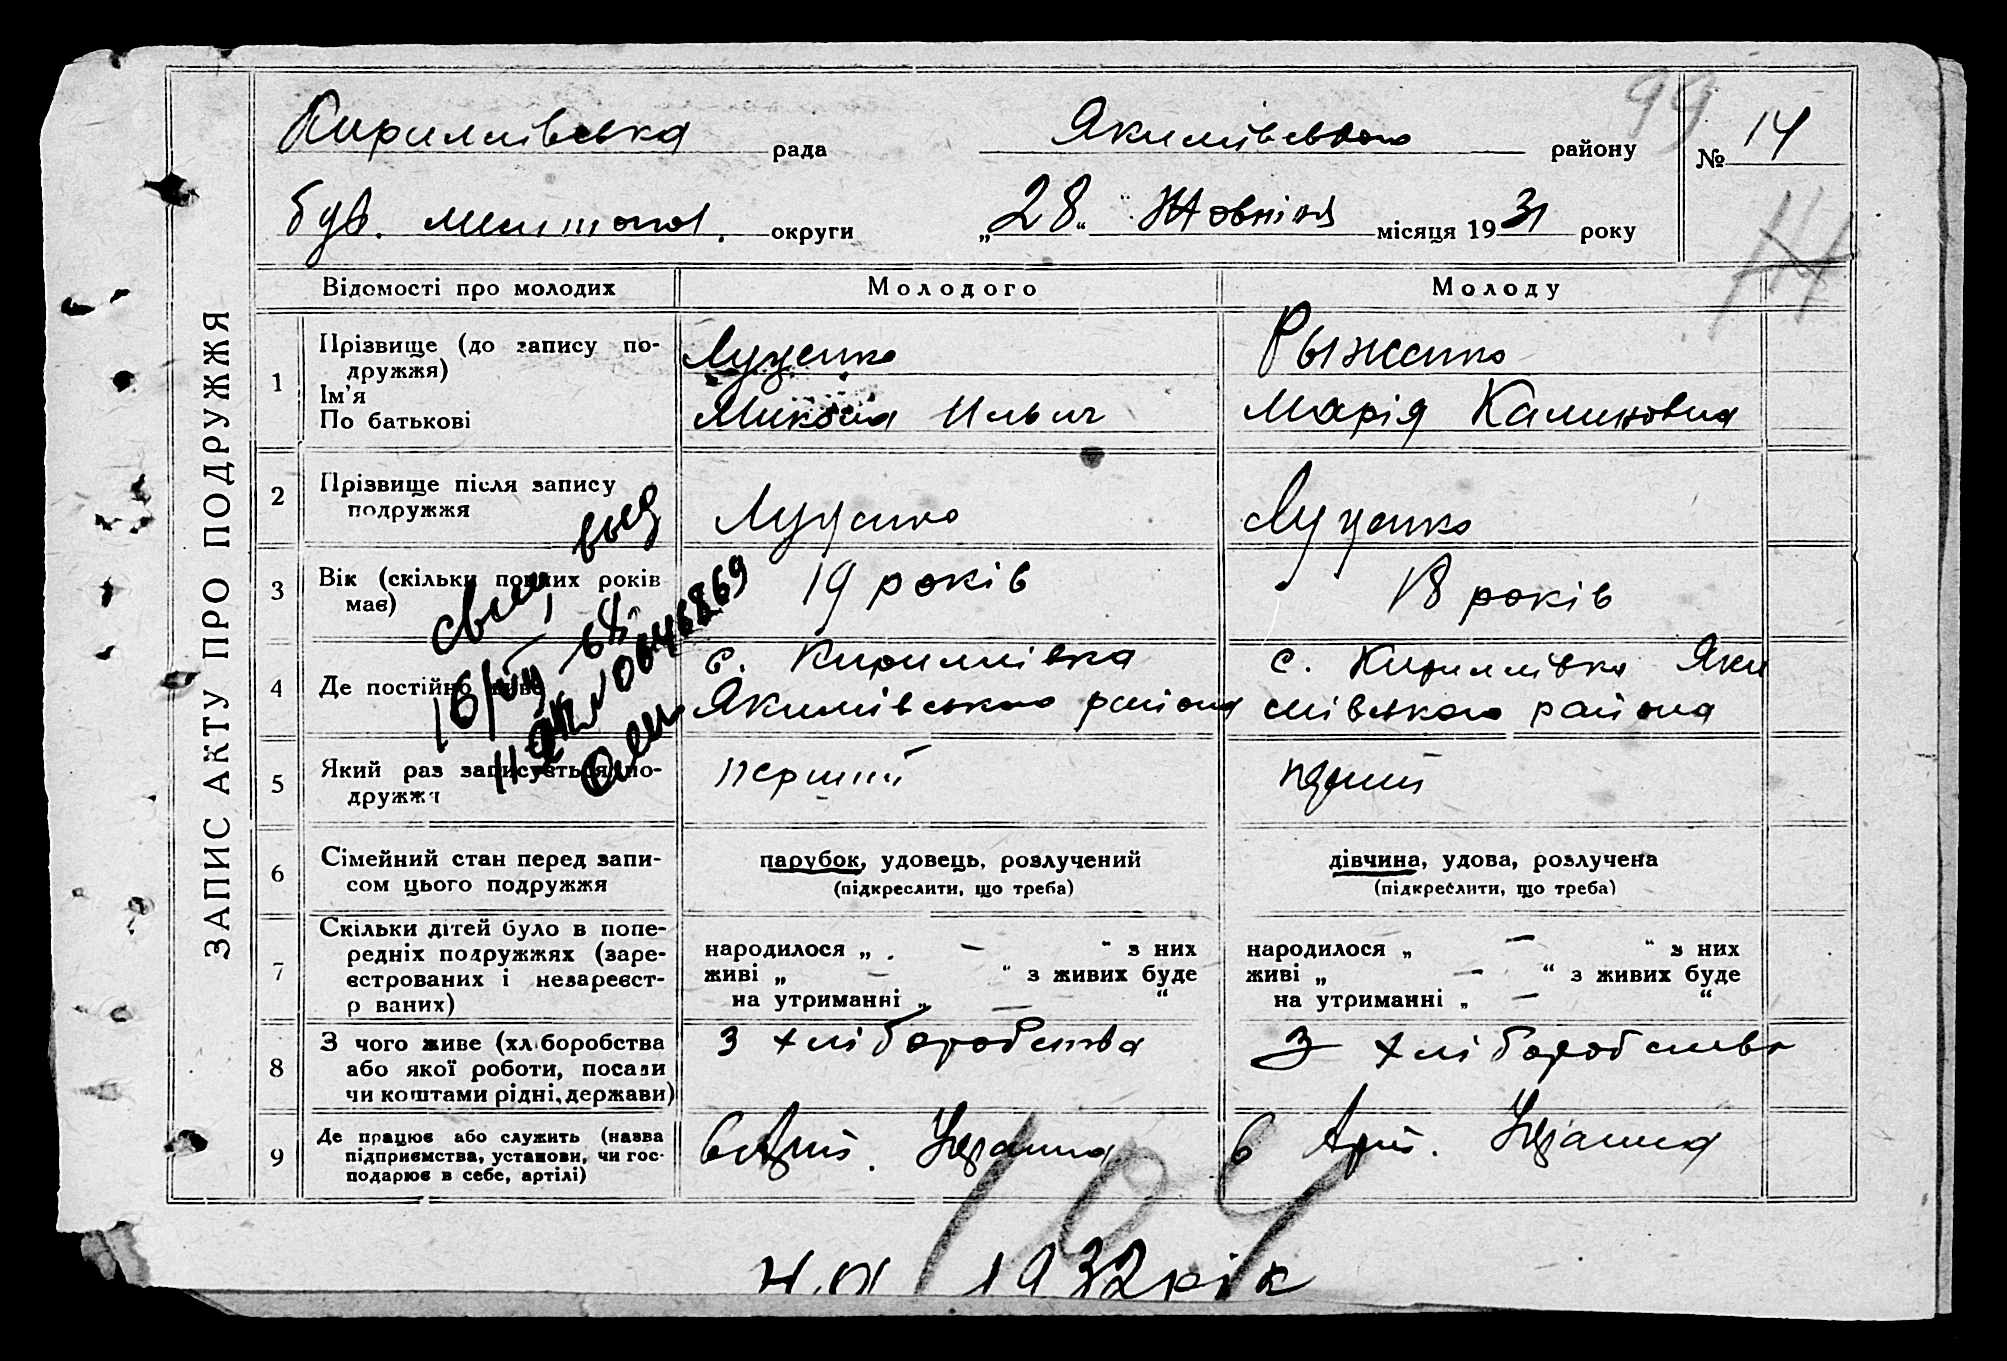 ЗАПИС АКТУ ПРО ПОДРУЖЖЯ
99
Кириллівська рада Якимівського району № 14
був. Мелитопол. округи „28“ Жовтня місяця 1931 року
Відомості про молодих Молодого Молоду
1 Прізвище (до запису по-
дружжя)
Ім'я
По батькові
Луценко
Микола Ильич
Рыженко
Марія Калиновна
2 Прізвище після запису
подружжя
Луценко
Луценко
3 Вік (скільки повних років
має)
19 років
18 років
4 Де постійно живе
с. Кириллівка
Якимівського района
с. Кириллівка Яки
мівського района
5 Який раз записується по-
дружжя
перший
6 Сімейний стан перед запи-
сом цього подружжя
парубок, удовець, розлучений
(підкреслити, що треба)
дівчина, удова, розлучена
(підкреслити, що треба)
7 Скільки дітей було в попе-
редніх подружжях (заре-
єстрованих і незареєст-
р ваних)
народилося „ — “ з них
живі „ — “ з живих буде
на утриманні „ — “
народилося „ — “ з них
живі „ — “ з живих буде
на утриманні „ — “
8 З чого живе (хліборобства
або якої роботи, посади
чи коштами рідні, держави)
з хліборобства
З хліборобства
9 Де працює або служить (назва
підприємства, установи, чи гос-
подарює в себе, артілі)
в Арт.
в Арт.
104
на 1932 рік